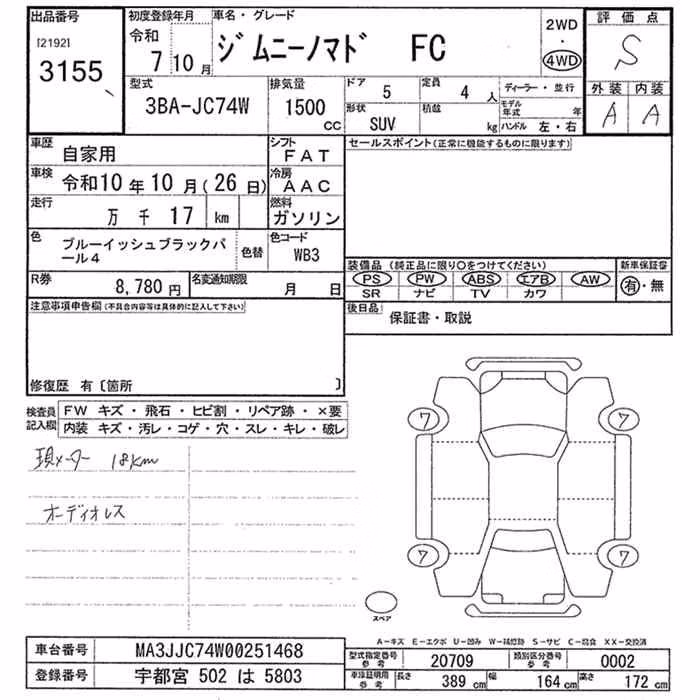 出品番号
[2192]
3155
初度登録年月
令和
7年10月
車名・グレード
ジムニーノマド FC
2WD
・
4WD
評価点
S
外装 内装
A A
型式
3BA-JC74W
排気量
1500
CC
ドア
5
定員
4 人
形状
SUV
積載
kg
ディーラー・並行
モデル年式 年
ハンドル 左・右
車歴
自家用
シフト
FAT
車検
令和10年10月(26日)
冷房
AAC
走行
万 千 17 km
燃料
ガソリン
色
ブルーイッシュブラックパール4
色替
色コード
WB3
R券
8,780 円
名変通知期限
月 日
セールスポイント(正常に機能するものに限ります)
装備品 (純正品に限り○をつけてください)
PS PW ABS エアB AW
SR ナビ TV カワ
新車保証書
有・無
後日品
保証書・取説
注意事項申告欄(不具合内容等は具体的に記入して下さい)
修復歴 有〔箇所 〕
検査員記入欄
FW キズ・飛石・ヒビ割・リペア跡・×要
内装 キズ・汚レ・コゲ・穴・スレ・キレ・破レ
現メーター 18km
オーディオレス
ワ ワ
ワ ワ
スペア
A-キズ E-エクボ U-凹み W-補修跡 S-サビ C-腐食 XX-交換済
車台番号
MA3JJC74W00251468
登録番号
宇都宮 502 は 5803
型式指定番号
参考
20709
類別区分番号
参考
0002
車体証明用
参考
長さ
389 cm
幅
164 cm
高さ
172 cm